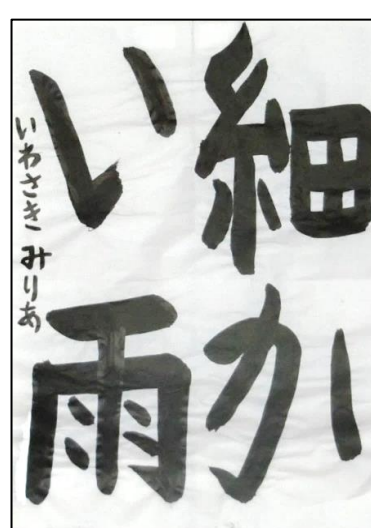 細か
い雨
いわさき みりあ